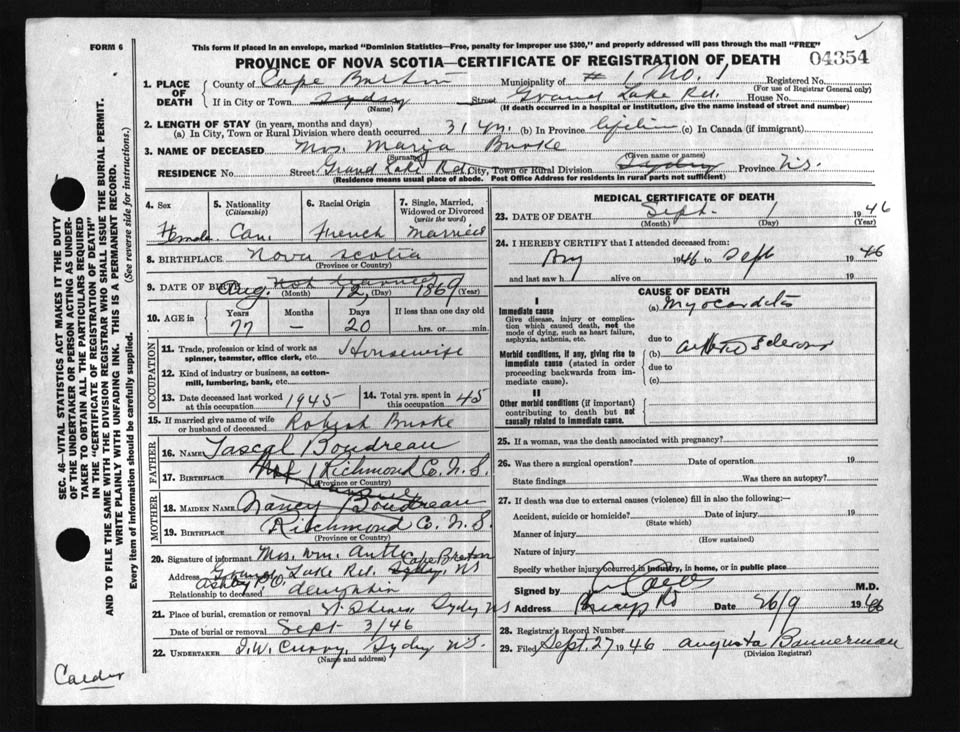 FORM 6
This form if placed in an envelope, marked "Dominion Statistics—Free, penalty for improper use $300," and properly addressed will pass through the mail "FREE"
PROVINCE OF NOVA SCOTIA—CERTIFICATE OF REGISTRATION OF DEATH 04354
1. PLACE OF DEATH
County of Cape Breton Municipality of # 1 No. 1 Registered No.
(For use of Registrar General only)
If in City or Town Sydney Street Grand Lake Rd. House No.
(Name) (If death occurred in a hospital or institution, give the name instead of street and number)
2. LENGTH OF STAY (in years, months and days)
(a) In City, Town or Rural Division where death occurred 31 yr. (b) In Province lifetime (c) In Canada (if immigrant)
3. NAME OF DECEASED Mrs. Maria Burke
(Surname) (Given name or names)
RESIDENCE No. Street Grand Lake Rd. City, Town or Rural Division Sydney Province N.S.
(Residence means usual place of abode. Post Office Address for residents in rural parts not sufficient)
4. Sex Female
5. Nationality (Citizenship) Can.
6. Racial Origin French
7. Single, Married, Widowed or Divorced (write the word) married
8. BIRTHPLACE Nova Scotia
(Province or Country)
9. DATE OF BIRTH Aug. 12, 1869
(Month) (Day) (Year)
10. AGE in Years 77 Months — Days 20 If less than one day old hrs. or min.
OCCUPATION
11. Trade, profession or kind of work as spinner, teamster, office clerk, etc. Housewife
12. Kind of industry or business, as cotton-mill, lumbering, bank, etc.
13. Date deceased last worked at this occupation 1945
14. Total yrs. spent in this occupation 45
15. If married give name of wife or husband of deceased Robert Burke
FATHER
16. NAME Pascal Boudreau
17. BIRTHPLACE Richmond Co. N.S.
(Province or Country)
MOTHER
18. MAIDEN NAME Nancy Boudreau
19. BIRTHPLACE Richmond Co. N.S.
(Province or Country)
20. Signature of informant Mrs. Wm.
Address Grand Lake Rd. Sydney, NS Cape Breton
Ashby P.O.
Relationship to deceased daughter
21. Place of burial, cremation or removal Sydney NS
Date of burial or removal Sept 3/46
22. UNDERTAKER J.W. Curry, Sydney N.S.
(Name and address)
MEDICAL CERTIFICATE OF DEATH
23. DATE OF DEATH Sept. 1 1946
(Month) (Day) (Year)
24. I HEREBY CERTIFY that I attended deceased from:
1946 to Sept 1946
and last saw h alive on 19
CAUSE OF DEATH
I
Immediate cause
Give disease, injury or complication which caused death, not the mode of dying, such as heart failure, asphyxia, asthenia, etc.
(a) Myocarditis
due to
Morbid conditions, if any, giving rise to immediate cause (stated in order proceeding backwards from immediate cause).
(b) Arterio Sclerosis
due to
(c)
II
Other morbid conditions (if important) contributing to death but not causally related to immediate cause.
25. If a woman, was the death associated with pregnancy?
26. Was there a surgical operation? Date of operation 19
State findings Was there an autopsy?
27. If death was due to external causes (violence) fill in also the following:—
Accident, suicide or homicide? Date of injury 19
(State which)
Manner of injury
(How sustained)
Nature of injury
Specify whether injury occurred in industry, in home, or in public place
Signed by M.D.
Address Date 26/9 1946
28. Registrar's Record Number
29. Filed Sept. 27 1946 Augusta Bannerman
(Division Registrar)
SEC. 46—VITAL STATISTICS ACT MAKES IT THE DUTY
OF THE UNDERTAKER OR PERSON ACTING AS UNDER-
TAKER TO OBTAIN ALL THE PARTICULARS REQUIRED
IN THE "CERTIFICATE OF REGISTRATION OF DEATH"
AND TO FILE THE SAME WITH THE DIVISION REGISTRAR WHO SHALL ISSUE THE BURIAL PERMIT.
WRITE PLAINLY WITH UNFADING INK. THIS IS A PERMANENT RECORD.
Every item of information should be carefully supplied. (See reverse side for instructions.)